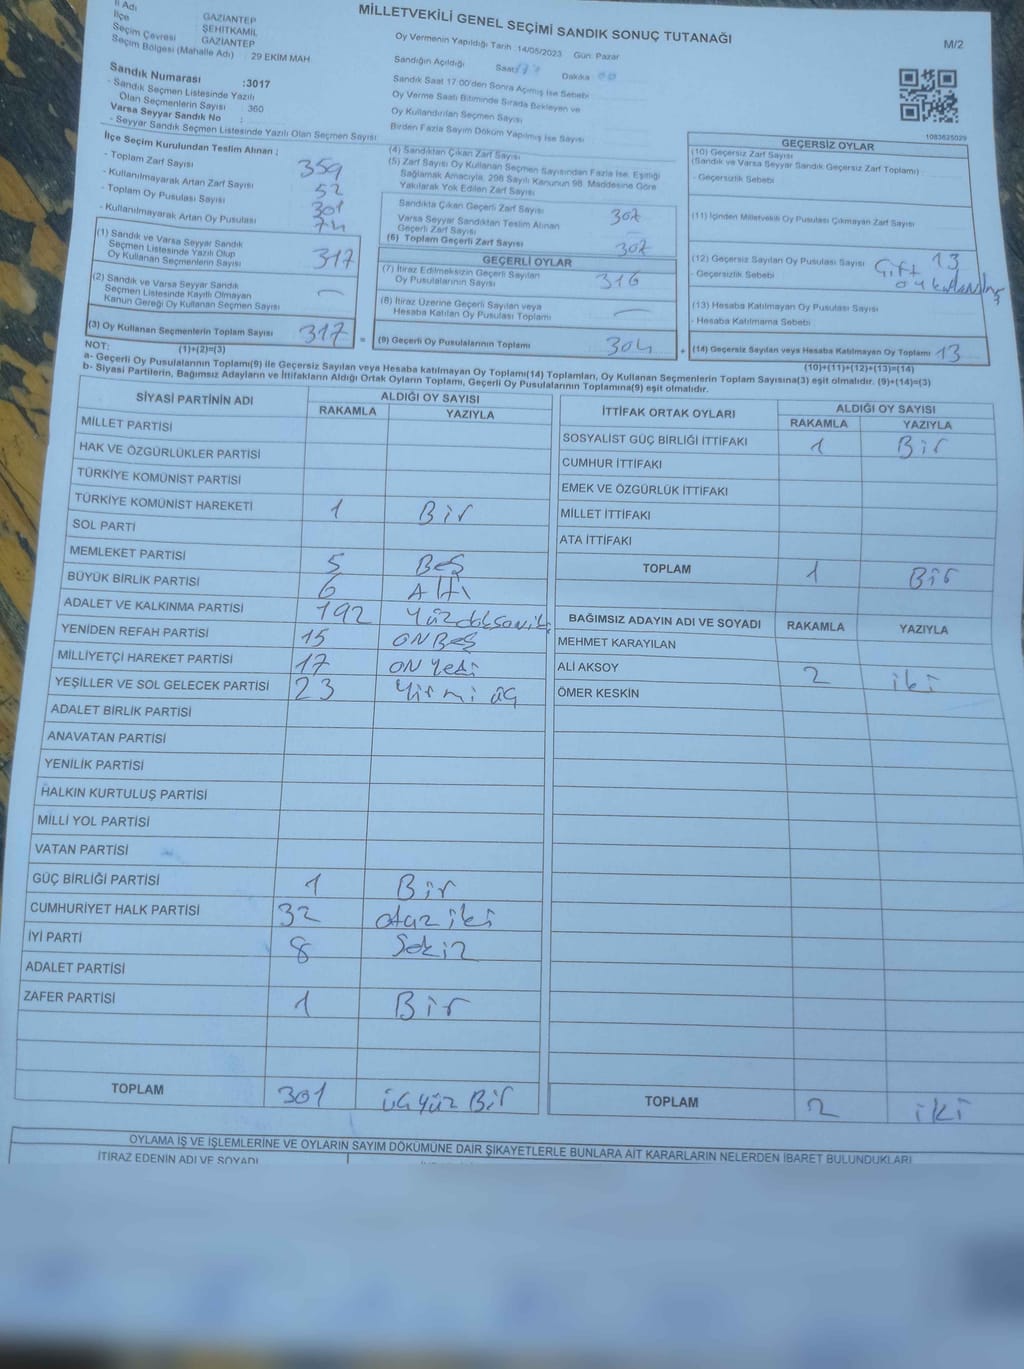 İl Adı GAZİANTEP
İlçe ŞEHİTKAMİL
Seçim Çevresi GAZİANTEP
Seçim Bölgesi (Mahalle Adı) : 29 EKİM MAH
Sandık Numarası :3017
- Sandık Seçmen Listesinde Yazılı
Olan Seçmenlerin Sayısı : 360
Varsa Seyyar Sandık No :
- Seyyar Sandık Seçmen Listesinde Yazılı Olan Seçmen Sayısı
MİLLETVEKİLİ GENEL SEÇİMİ SANDIK SONUÇ TUTANAĞI
M/2
Oy Vermenin Yapıldığı Tarih :14/05/2023 Gün: Pazar
Sandığın Açıldığı Saat Dakika
Sandık Saat 17:00'den Sonra Açımış İse Sebebi
Oy Verme Saati Bitiminde Sırada Bekleyen ve
Oy Kullandırılan Seçmen Sayısı
Birden Fazla Sayım Döküm Yapılmış İse Sayısı
1083625029
İlçe Seçim Kurulundan Teslim Alınan ;
- Toplam Zarf Sayısı 359
- Kullanılmayarak Artan Zarf Sayısı 52
- Toplam Oy Pusulası Sayısı 301
- Kullanılmayarak Artan Oy Pusulası 74
(1) Sandık ve Varsa Seyyar Sandık
Seçmen Listesinde Yazılı Olup
Oy Kullanan Seçmenlerin Sayısı 317
(2) Sandık ve Varsa Seyyar Sandık
Seçmen Listesinde Kayıtlı Olmayan
Kanun Gereği Oy Kullanan Seçmen Sayısı —
(3) Oy Kullanan Seçmenlerin Toplam Sayısı 317 =
(4) Sandıktan Çıkan Zarf Sayısı
(5) Zarf Sayısı Oy Kullanan Seçmen Sayısından Fazla İse, Eşitliği
Sağlamak Amacıyla, 298 Sayılı Kanunun 98. Maddesine Göre
Yakılarak Yok Edilen Zarf Sayısı
Sandıkta Çıkan Geçerli Zarf Sayısı 307
Varsa Seyyar Sandıktan Teslim Alınan
Geçerli Zarf Sayısı —
(6) Toplam Geçerli Zarf Sayısı 307
GEÇERLİ OYLAR
(7) İtiraz Edilmeksizin Geçerli Sayılan
Oy Pusulalarının Sayısı 316
(8) İtiraz Üzerine Geçerli Sayılan veya
Hesaba Katılan Oy Pusulası Toplamı —
(9) Geçerli Oy Pusulalarının Toplamı 304 +
GEÇERSİZ OYLAR
(10) Geçersiz Zarf Sayısı
(Sandık ve Varsa Seyyar Sandık Geçersiz Zarf Toplamı)
- Geçersizlik Sebebi
(11) İçinden Milletvekili Oy Pusulası Çıkmayan Zarf Sayısı
(12) Geçersiz Sayılan Oy Pusulası Sayısı 13
- Geçersizlik Sebebi Çift oy
(13) Hesaba Katılmayan Oy Pusulası Sayısı
- Hesaba Katılmama Sebebi
(14) Geçersiz Sayılan veya Hesaba Katılmayan Oy Toplamı 13
NOT: (1)+(2)=(3) (10)+(11)+(12)+(13)=(14)
a- Geçerli Oy Pusulalarının Toplamı(9) ile Geçersiz Sayılan veya Hesaba katılmayan Oy Toplamı(14) Toplamları, Oy Kullanan Seçmenlerin Toplam Sayısına(3) eşit olmalıdır. (9)+(14)=(3)
b- Siyasi Partilerin, Bağımsız Adayların ve İttifakların Aldığı Ortak Oyların Toplamı, Geçerli Oy Pusulalarının Toplamına(9) eşit olmalıdır.
SİYASİ PARTİNİN ADI ALDIĞI OY SAYISI
RAKAMLA YAZIYLA
MİLLET PARTİSİ
HAK VE ÖZGÜRLÜKLER PARTİSİ
TÜRKİYE KOMÜNİST PARTİSİ
TÜRKİYE KOMÜNİST HAREKETİ 1 Bir
SOL PARTİ
MEMLEKET PARTİSİ 5 Beş
BÜYÜK BİRLİK PARTİSİ 6 Altı
ADALET VE KALKINMA PARTİSİ 192 Yüzdoksaniki
YENİDEN REFAH PARTİSİ 15 ON BEŞ
MİLLİYETÇİ HAREKET PARTİSİ 17 ON Yedi
YEŞİLLER VE SOL GELECEK PARTİSİ 23 Yirmi üç
ADALET BİRLİK PARTİSİ
ANAVATAN PARTİSİ
YENİLİK PARTİSİ
HALKIN KURTULUŞ PARTİSİ
MİLLİ YOL PARTİSİ
VATAN PARTİSİ
GÜÇ BİRLİĞİ PARTİSİ 1 Bir
CUMHURİYET HALK PARTİSİ 32 otuz iki
İYİ PARTİ 8 Sekiz
ADALET PARTİSİ
ZAFER PARTİSİ 1 Bir
TOPLAM 301 üçyüz Bir
İTTİFAK ORTAK OYLARI ALDIĞI OY SAYISI
RAKAMLA YAZIYLA
SOSYALİST GÜÇ BİRLİĞİ İTTİFAKI 1 Bir
CUMHUR İTTİFAKI
EMEK VE ÖZGÜRLÜK İTTİFAKI
MİLLET İTTİFAKI
ATA İTTİFAKI
TOPLAM 1 Bir
BAĞIMSIZ ADAYIN ADI VE SOYADI RAKAMLA YAZIYLA
MEHMET KARAYILAN
ALİ AKSOY 2 iki
ÖMER KESKİN
TOPLAM 2 iki
OYLAMA İŞ VE İŞLEMLERİNE VE OYLARIN SAYIM DÖKÜMÜNE DAİR ŞİKAYETLERLE BUNLARA AİT KARARLARIN NELERDEN İBARET BULUNDUKLARI
İTİRAZ EDENİN ADI VE SOYADI